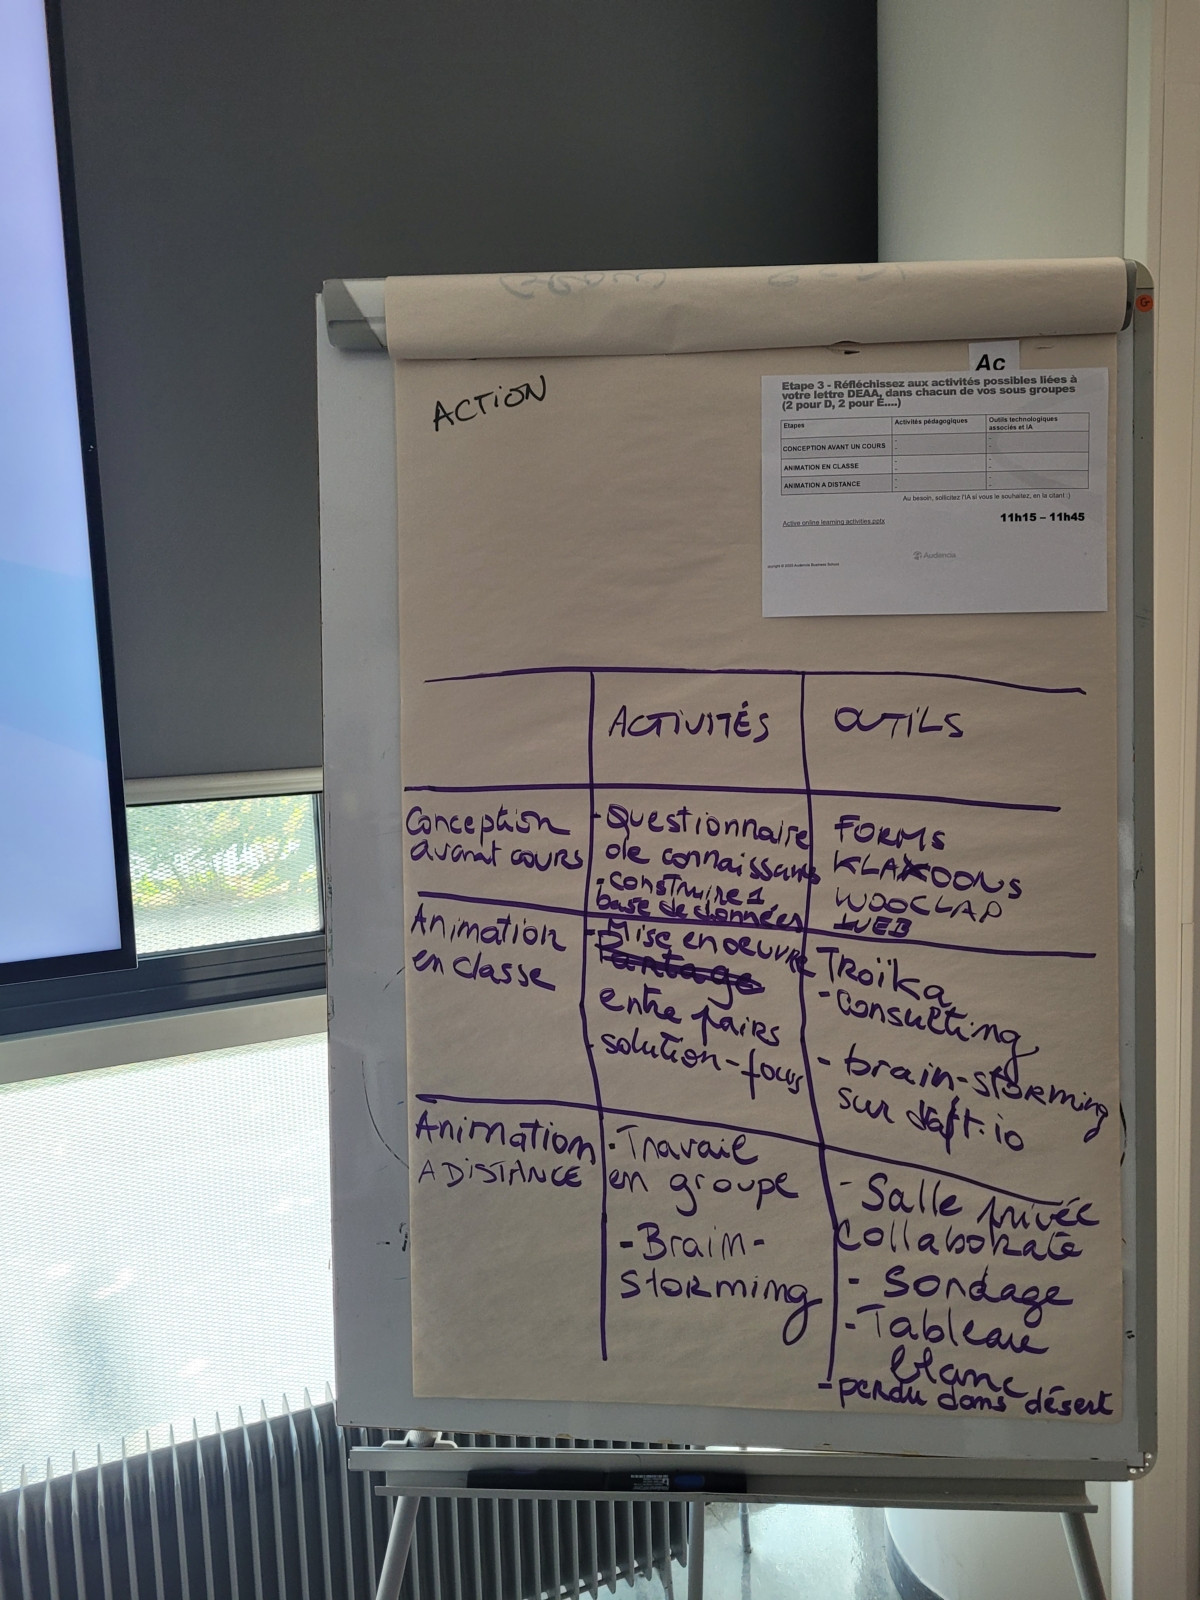 ACTION
Ac
Etape 3 - Réfléchissez aux activités possibles liées à
votre lettre DEAA, dans chacun de vos sous groupes
(2 pour D, 2 pour E....)
Etapes
Activités pédagogiques
Outils technologiques
associés et IA
CONCEPTION AVANT UN COURS
ANIMATION EN CLASSE
ANIMATION A DISTANCE
Au besoin, sollicitez l'IA si vous le souhaitez, en la citant :)
Active online learning activities.pptx
11h15 – 11h45
Audencia
ACTIVITÉS
OUTILS
Conception
avant cours
- Questionnaire
de connaissances
- construire 1
base de données
FORMS
KLAXOONS
WOOCLAP
WEB
Animation
en classe
- Mise en oeuvre
Partage
entre pairs
- solution-focus
Troïka
- consulting
- brain-storming
sur draft.io
Animation
A DISTANCE
- Travail
en groupe
- Brain-
storming
- Salle privée
Collaborate
- Sondage
- Tableau
blanc
- perdu dans désert